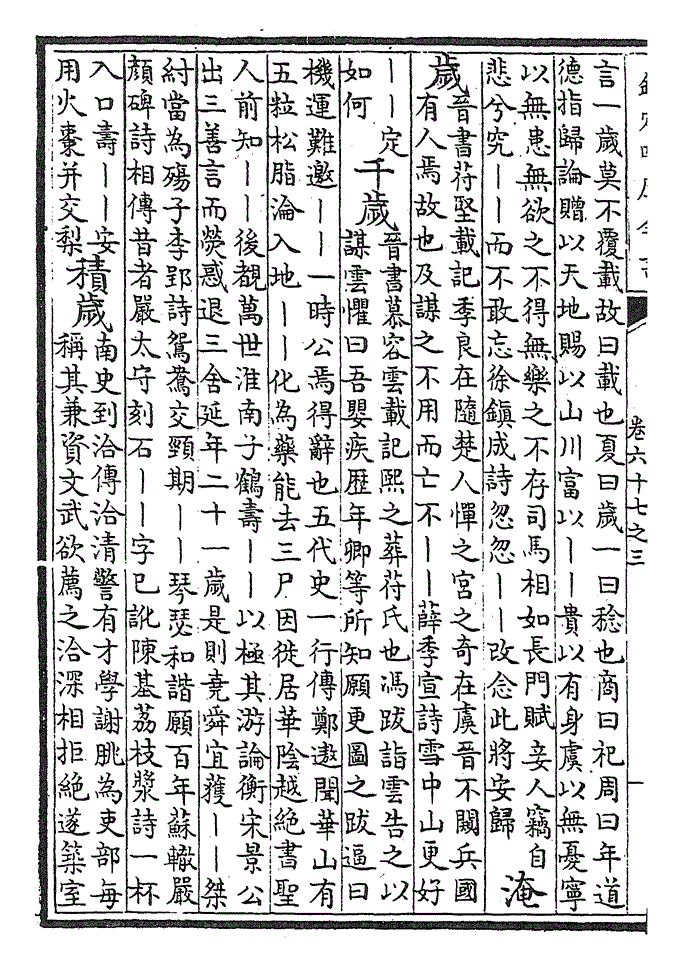 卷六十七之三
言一歲莫不覆載故曰載也夏曰歲一曰稔也商曰祀周曰年道
德指歸論贈以天地賜以山川富以——貴以有身虞以無憂寧
以無患無欲之不得無樂之不存司馬相如長門賦妾人竊自
悲兮究——而不敢忘徐鎮成詩忽忽——改念此將安歸
淹
歲
晉書苻堅載記季良在隨楚人憚之宮之奇在虞晉不闚兵國
有人焉故也及謀之不用而亡不——薛季宣詩雪中山更好
——定
如何
千歲
晉書慕容雲載記熙之葬苻氏也馮跋詣雲告之以
謀雲懼曰吾嬰疾歷年卿等所知願更圖之跋逼曰
機運難邀——一時公焉得辭也五代史一行傳鄭遨聞華山有
五粒松脂淪入地——化為藥能去三尸因徙居華陰越絕書聖
人前知——後覩萬世淮南子鶴壽——以極其游論衡宋景公
出三善言而熒惑退三舍延年二十一歲是則堯舜宜獲——桀
紂當為殤子李郢詩鴛鴦交頸期——琴瑟和諧願百年蘇轍嚴
顏碑詩相傳昔者嚴太守刻石——字已訛陳基荔枝漿詩一杯
入口壽——安
用火棗并交梨
積歲
南史到洽傳洽清警有才學謝朓為吏部每
稱其兼資文武欲薦之洽深相拒絕遂築室